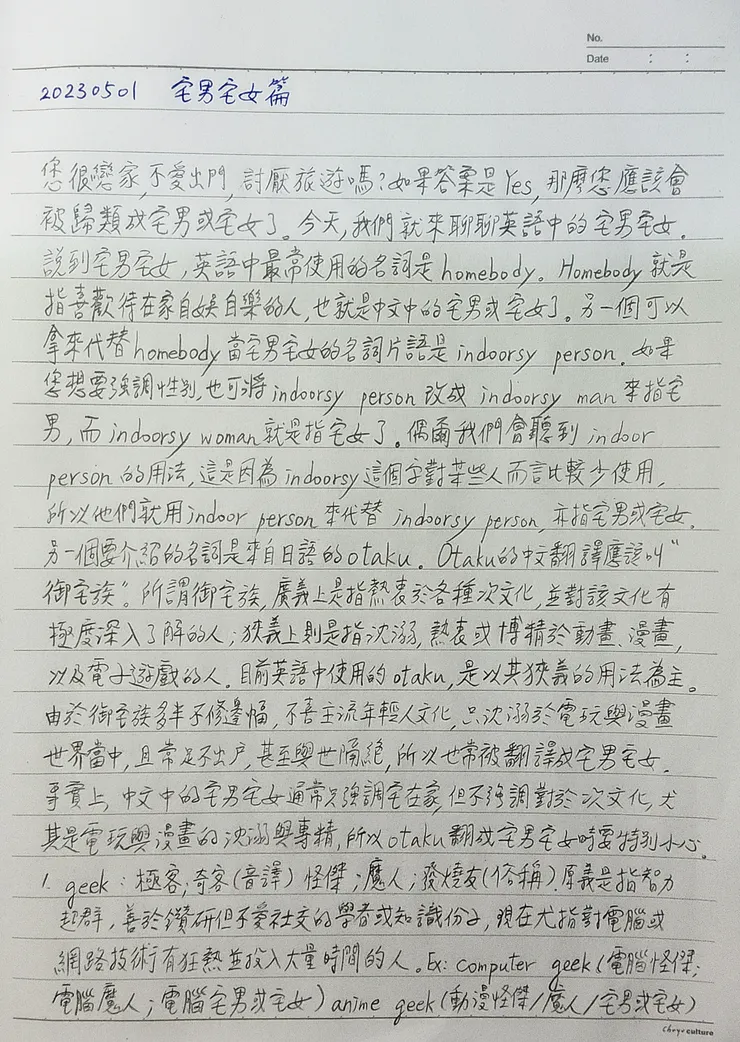 No.
Date : :
20230501 宅男宅女篇
您很戀家,不愛出門,討厭旅遊嗎?如果答案是Yes,那麼您應該會
被歸類成宅男或宅女了。今天,我們就來聊聊英語中的宅男宅女。
說到宅男宅女,英語中最常使用的名詞是homebody。Homebody就是
指喜歡待在家自娛自樂的人,也就是中文中的宅男或宅女了。另一個可以
拿來代替homebody當宅男宅女的名詞片語是indoorsy person。如果
您想要強調性別,也可將indoorsy person改成 indoorsy man來指宅
男,而indoorsy woman就是指宅女了。偶爾我們會聽到indoor
person的用法,這是因為indoorsy這個字對某些人而言比較少使用,
所以他們就用indoor person來代替 indoorsy person,亦指宅男或宅女。
另一個要介紹的名詞是來自日語的otaku。Otaku的中文翻譯應該叫“
御宅族”。所謂御宅族,廣義上是指熱衷於各種次文化,並對該文化有
極度深入了解的人;狹義上則是指沈溺,熱衷或博精於動畫、漫畫,
以及電子遊戲的人。目前英語中使用的otaku,是以其狹義的用法為主。
由於御宅族多半不修邊幅,不喜主流年輕人文化,只沈溺於電玩與漫畫
世界當中,且常足不出戶,甚至與世隔絕,所以也常被翻譯成宅男宅女。
事實上,中文中的宅男宅女通常只強調宅在家,但不強調對於次文化,尤
其是電玩與漫畫的沈溺與專精,所以otaku翻成宅男宅女時要特別小心。
1. geek:極客;奇客(音譯)怪傑;魔人;發燒友(俗稱).原義是指智力
超群,善於鑽研但不愛社交的學者或知識份子,現在尤指對電腦或
網路技術有狂熱並投入大量時間的人。Ex: computer geek(電腦怪傑;
電腦魔人;電腦宅男或宅女)anime geek(動漫怪傑/魔人/宅男或宅女)
culture